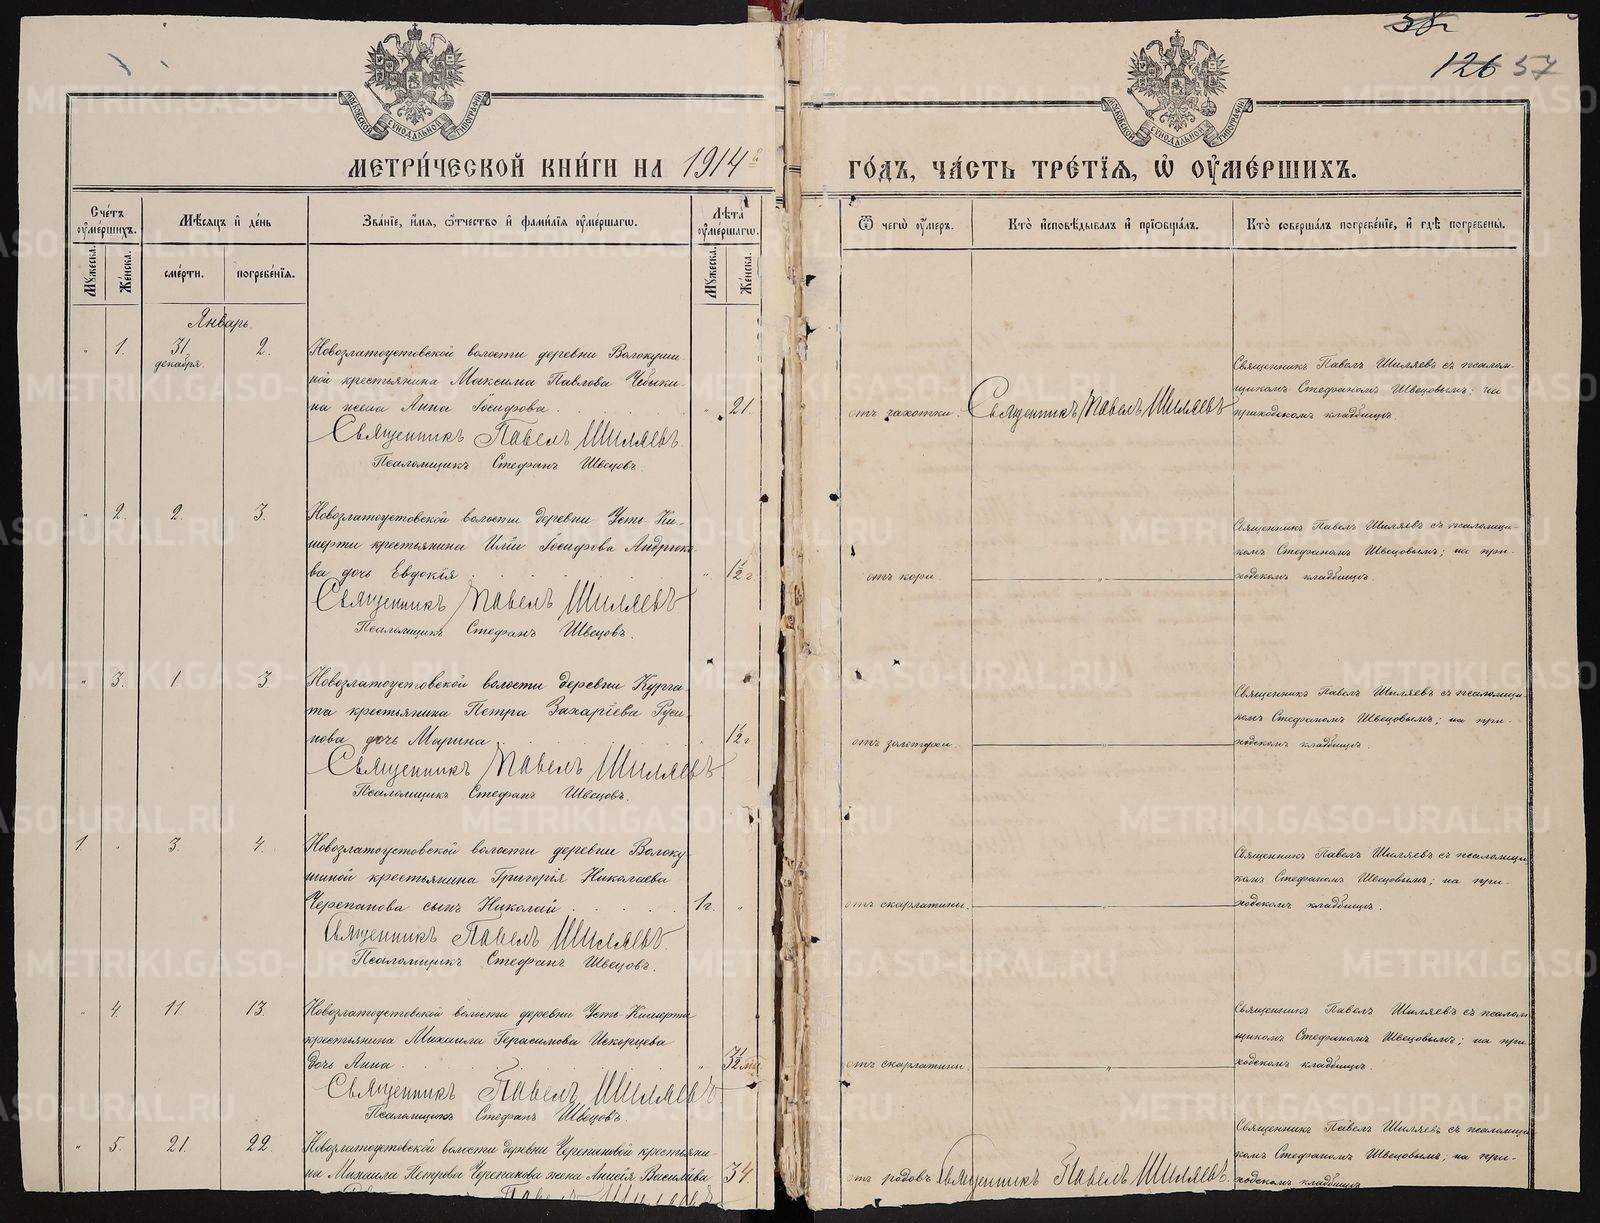 58
126 57
МОСКОВСКОЙ СѴНОДАЛЬНОЙ ТИПОГРАФІИ
МОСКОВСКОЙ СѴНОДАЛЬНОЙ ТИПОГРАФІИ
МЕТРИ́ЧЕСКОЙ КНИ́ГИ НА 1914й ГО́ДЪ, ЧА́СТЬ ТРЕ́ТІѦ, Ѡ ОУ҆МЕ́РШИХЪ.
Сче́тъ оу҆ме́ршихъ.
Мѣ́сяцъ и҆ де́нь
Зва́нїе, и҆́мя, ѻ҆́тчество и҆ фами́лїя оу҆ме́ршагѡ.
Лѣ́та оу҆ме́ршагѡ.
Ѿ чегѡ̀ оу҆́меръ.
Кто̀ и҆сповѣ́дывалъ и҆ прїѡбща́лъ.
Кто̀ соверша́лъ погребе́нїе, и҆ гдѣ̀ погребены̀.
Мꙋ́жеска. Же́нска. сме́рти. погребе́нїя. Мꙋ́жеска. Же́нска.
Январь.
" 1. 31 декабря. 2.
Новозлатоустовской волости деревни Волокуши
ной крестьянина Максима Павлова Чебыки-
на жена Анна Іосифова. " 21.
Священникъ Павелъ Шиляевъ.
Псаломщикъ Стефанъ Швецовъ.
отъ чахотки. Священникъ Павелъ Шиляевъ
Священникъ Павелъ Шиляевъ съ псалом-
щикомъ Стефаномъ Швецовымъ; на
приходскомъ кладбищѣ.
" 2. 2. 3.
Новозлатоустовской волости деревни Усть-Ки-
шерти крестьянина Иліи Іосифова Андрюко-
ва дочь Евдокія. " 1/2 г
Священникъ Павелъ Шиляевъ
Псаломщикъ Стефанъ Швецовъ.
отъ кори. "
Священникъ Павелъ Шиляевъ съ псаломщи-
комъ Стефаномъ Швецовымъ; на при-
ходскомъ кладбищѣ.
" 3. 1. 3.
Новозлатоустовской волости деревни Курга-
та крестьянина Петра Захаріева Руси-
нова дочь Марина. " 1/2 г
Священникъ Павелъ Шиляевъ
Псаломщикъ Стефанъ Швецовъ.
отъ золотухи. "
Священникъ Павелъ Шиляевъ съ псаломщи-
комъ Стефаномъ Швецовымъ; на при-
ходскомъ кладбищѣ.
1. " 3. 4.
Новозлатоустовской волости деревни Волоку-
шиной крестьянина Григорія Николаева
Черепанова сынъ Николай. 1 г. "
Священникъ Павелъ Шиляевъ.
Псаломщикъ Стефанъ Швецовъ.
отъ скарлатины. "
Священникъ Павелъ Шиляевъ съ псаломщи
комъ Стефаномъ Швецовымъ; на при-
ходскомъ кладбищѣ.
" 4. 11. 13.
Новозлатоустовской волости деревни Усть-Кишерти
крестьянина Михаила Герасимова Искорцева
дочь Анна. "
Священникъ Павелъ Шиляевъ
Псаломщикъ Стефанъ Швецовъ.
отъ скарлатины. "
Священникъ Павелъ Шиляевъ съ псалом
щикомъ Стефаномъ Швецовымъ; на при
ходскомъ кладбищѣ.
" 5. 21. 22.
Новозлатоустовской волости деревни Черепановой крестьяни-
на Михаила Петрова Черепанова жена Анисія Васильева 34
Павелъ Шиляевъ
отъ родовъ. Священникъ Павелъ Шиляевъ.
Священникъ Павелъ Шиляевъ съ псаломщи
комъ Стефаномъ Швецовымъ; на при-
ходскомъ кладбищѣ
METRIKI.GASO-URAL.RU